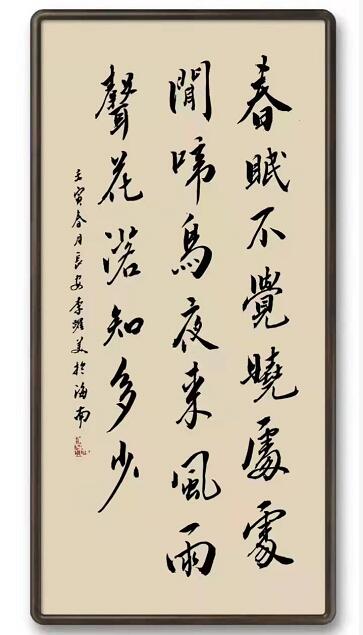 春眠不覺曉處處
聞啼鳥夜来風雨
聲花落知多少
壬寅春月長安李美於海南